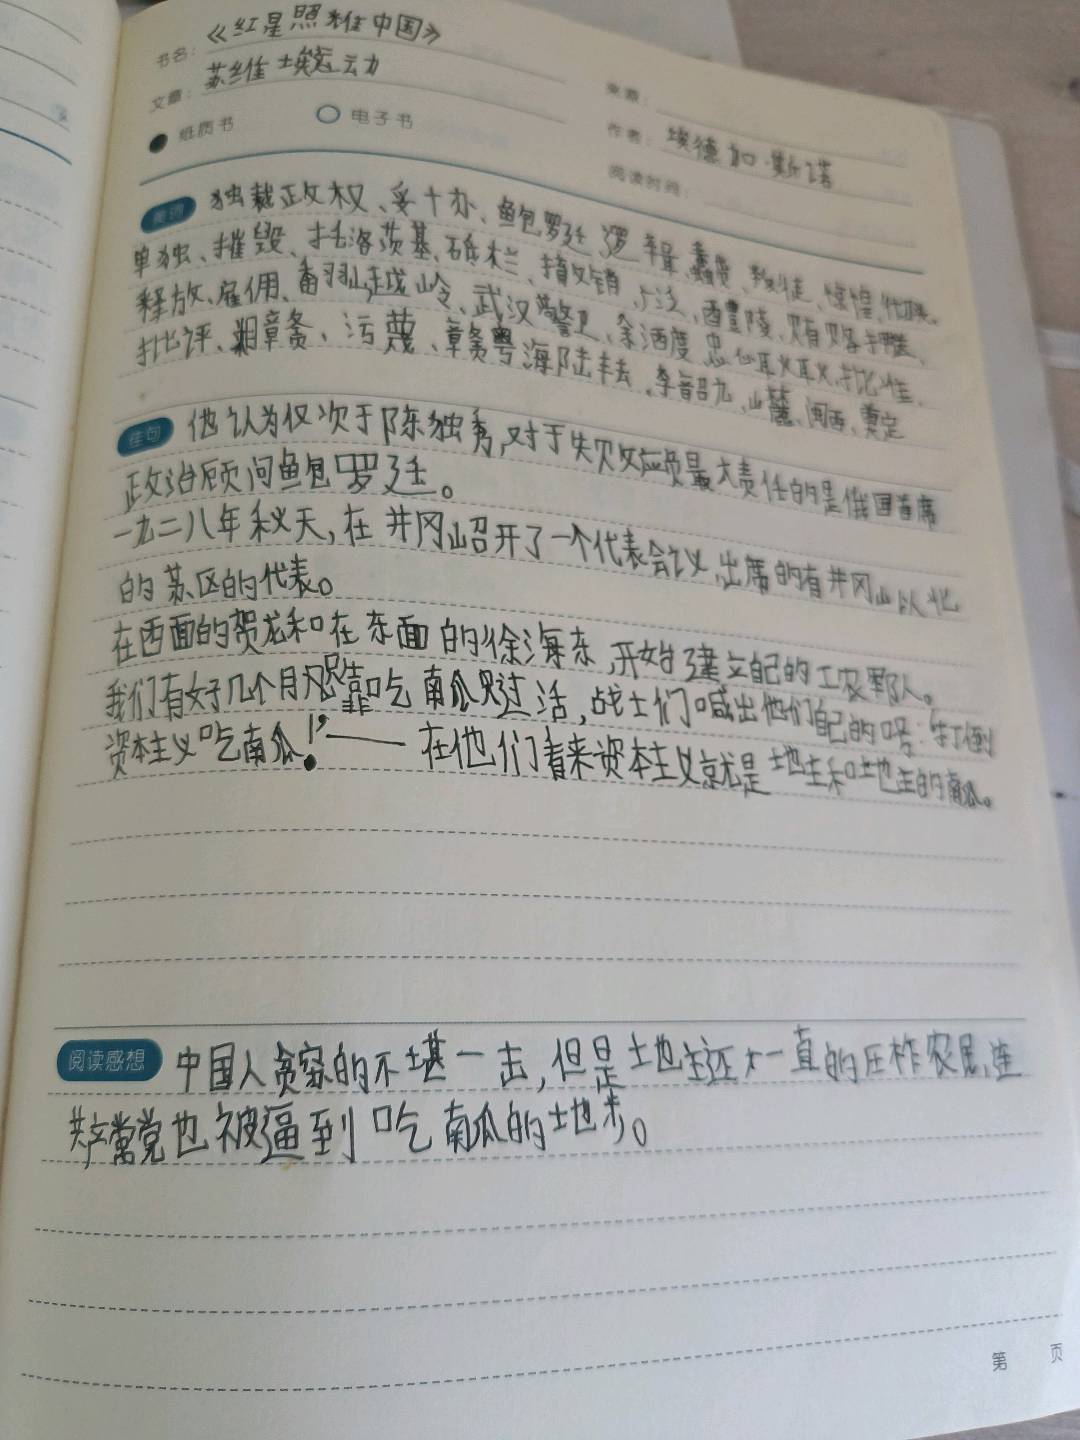 书名：《红星照耀中国》
文章：苏维埃运动
纸质书 电子书
来源：
作者：埃德加·斯诺
阅读时间：
美词 独裁政权、妥十办、鱼包罗廷、逻辑、
单独、摧毁、托洛茨基、砥栏、醴陵、
释放、雇佣、翻山越岭、武汉警卫、余洒度、忠心耿耿、
批评、湘章赣、污蔑、章赣粤、海陆丰、李韶九、山麓、闽西、奠定
佳句 他认为仅次于陈独秀，对于失败应负最大责任的是俄国首席
政治顾问鱼包罗廷。
一九二八年秋天，在井冈山召开了一个代表会议，出席的有井冈山以北
的苏区的代表。
在西面的贺龙和在东面的徐海东，开始建立自己的工农军队。
我们有好几个月只靠吃南瓜过活，战士们喊出他们自己的口号：“打倒
资本主义吃南瓜！”——在他们看来资本主义就是地主和地主的南瓜。
阅读感想 中国人贫穷的不堪一击，但是土地主还在一直的压榨农民，连
共产党也被逼到吃南瓜的地步。
第 页